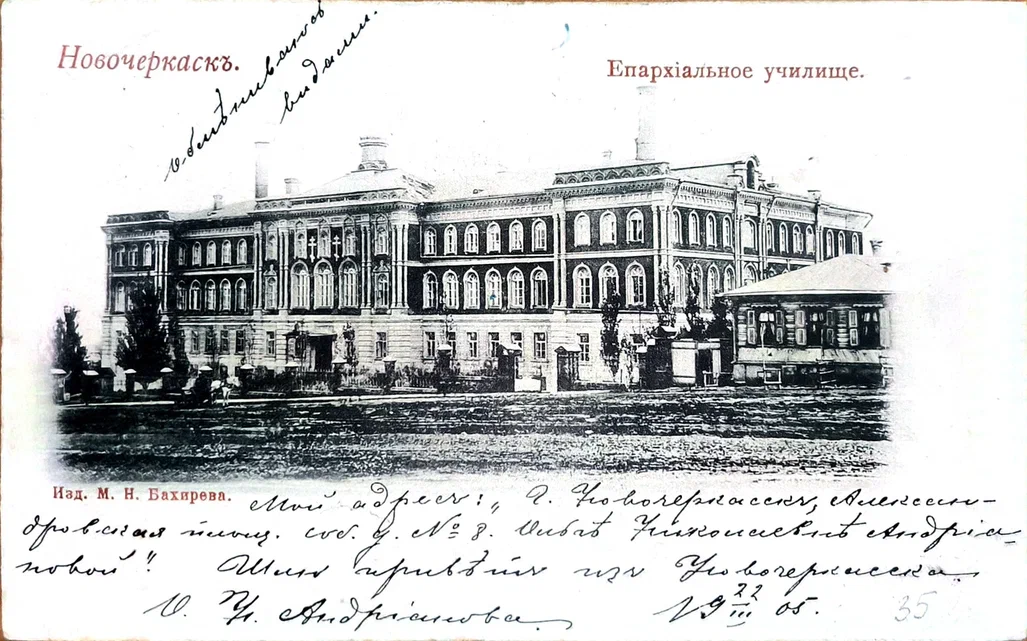 Новочеркаскъ.
Епархіальное училище.
видами.
Изд. М. Н. Бахирева.
Мой адресъ: „Г. Новочеркасскъ, Алексан-
дровская площ. соб. д. № 8. Ольгѣ Николаевнѣ Андріа-
новой". Шлю привѣтъ изъ Новочеркасска.
О. Н. Андріанова. 19 22/III 05.
35